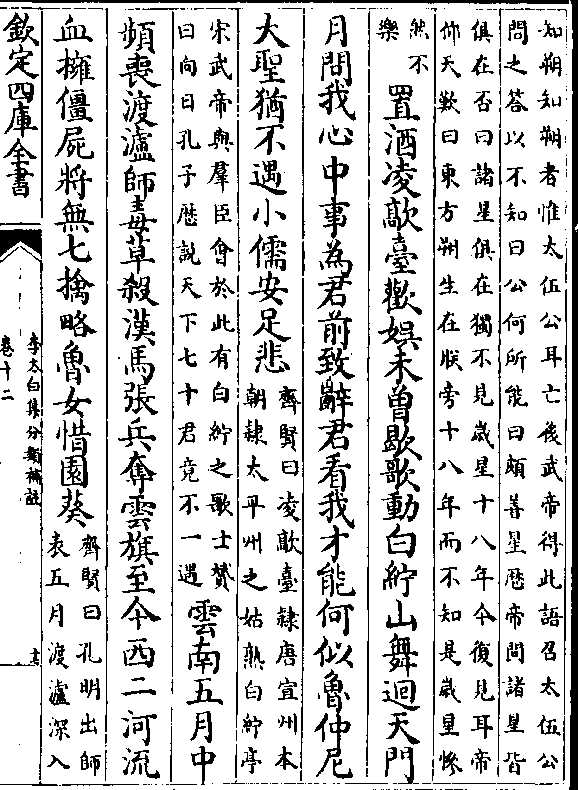 知朔知朔者惟太伍公耳亡後武帝得此語召太伍公
問之答以不知曰公何所能曰頗善星厯帝問諸星皆
俱在否曰諸星俱在獨不見嵗星十八年今復見耳帝
仰天歎曰東方朔生在朕旁十八年而不知是嵗星慘
然不
樂
置酒凌歊臺歡娯未曽歇歌動白紵山舞迴天門
月問我心中事為君前致辭君看我才能何似魯仲尼
大聖猶不遇小儒安足悲
齊賢曰凌歊臺隷唐宣州本
朝隷太平州之姑熟白紵亭
宋武帝與羣臣會於此有白紵之歌士贇
曰向日孔子厯說天下七十君竟不一遇
雲南五月中
頻喪渡瀘師毒草殺漢馬張兵奪雲旗至今西二河流
血擁僵屍將無七擒略魯女惜園葵
齊賢曰孔明出師
表五月渡瀘深入
欽定四庫全書
李太白集分類補註
卷十二